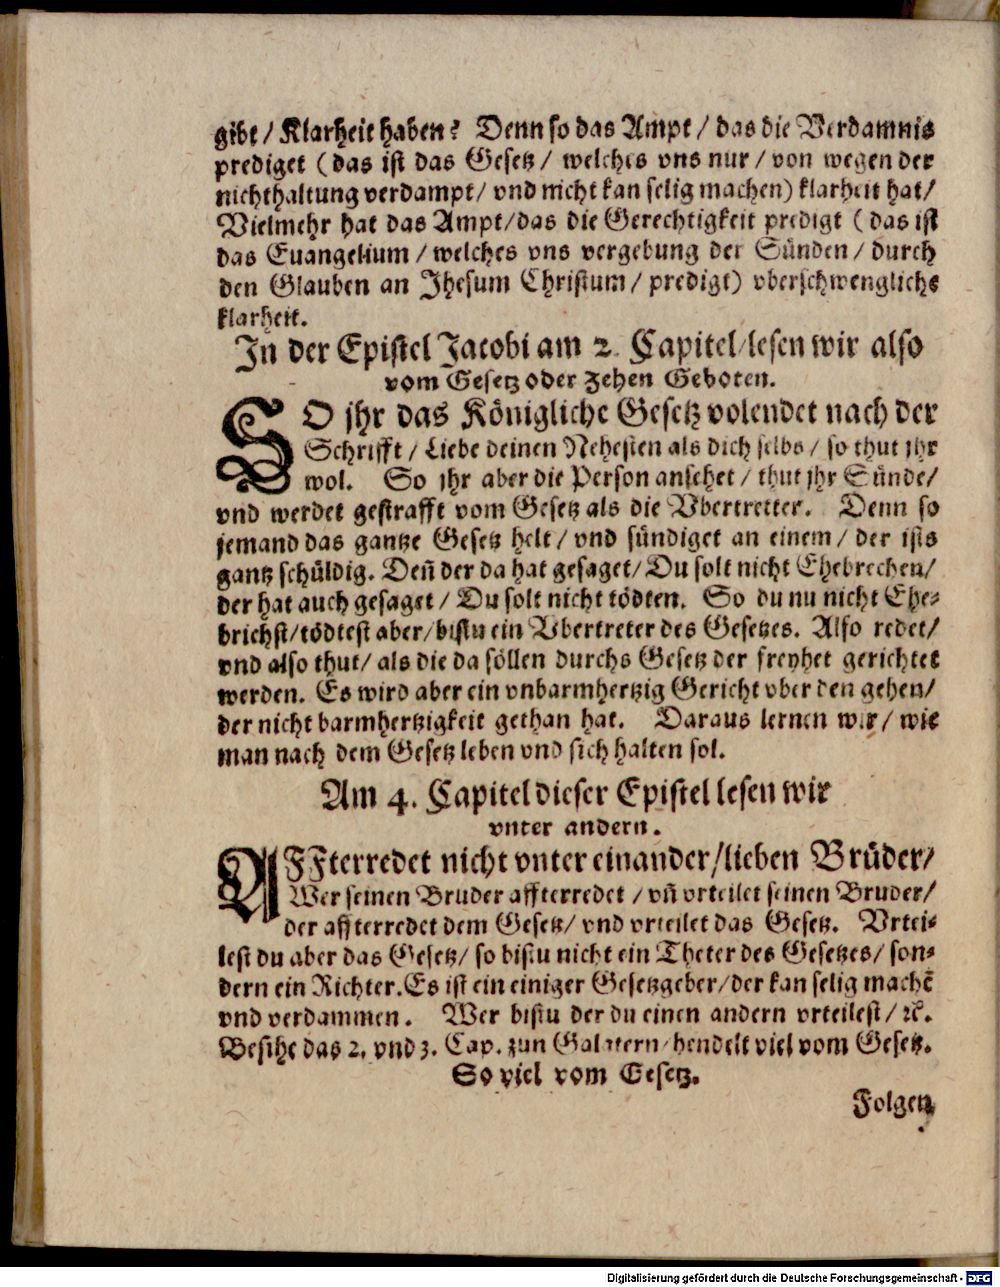 gibt / Klarheit haben? Denn so das Ampt / das die Verdamnis
prediget (das ist das Gesetz / welches vns nur / von wegen der
nichthaltung verdampt / vnd nicht kan selig machen) klarheit hat /
Vielmehr hat das Ampt / das die Gerechtigkeit predigt (das ist
das Euangelium / welches vns vergebung der Sünden / durch
den Glauben an Jhesum Christum / predigt) vberschwenglichs
klarheit.
In der Epistel Jacobi am 2. Capitel / lesen wir also
vom Gesetz oder Zehen Geboten.
SO jhr das Königliche Gesetz volendet nach der
Schrifft / Liebe deinen Nehesten als dich selbs / so thut jhr
wol. So jhr aber die Person ansehet / thut jhr Sünde /
vnd werdet gestrafft vom Gesetz als die Vbertretter. Denn so
jemand das gantze Gesetz helt / vnd sündiget an einem / der ists
gantz schüldig. Deñ der da hat gesaget / Du solt nicht Ehebrechen /
der hat auch gesaget / Du solt nicht tödten. So du nu nicht Ehe-
brichst / tödtest aber / bistu ein Vbertreter des Gesetzes. Also redet /
vnd also thut / als die da söllen durchs Gesetz der freyhet gerichtet
werden. Es wird aber ein vnbarmhertzig Gericht vber den gehen /
der nicht barmhertzigkeit gethan hat. Daraus lernen wir / wie
man nach dem Gesetz leben vnd sich halten sol.
Am 4. Capitel dieser Epistel lesen wir
vnter andern.
AFFterredet nicht vnter einander / lieben Brüder /
Wer seinen Bruder affterredet / vñ vrteilet seinen Bruder /
der affterredet dem Gesetz / vnd vrteilet das Gesetz. Vrtei-
lest du aber das Gesetz / so bistu nicht ein Theter des Gesetzes / son-
dern ein Richter. Es ist ein einiger Gesetzgeber / der kan selig machē
vnd verdammen. Wer bistu der du einen andern vrteilest / ꝛc.
Besihe das 2. vnd 3. Cap. zun Galatern / handelt viel vom Gesetz.
So viel vom Gesetz.
Folgen
Digitalisierung gefördert durch die Deutsche Forschungsgemeinschaft - DFG